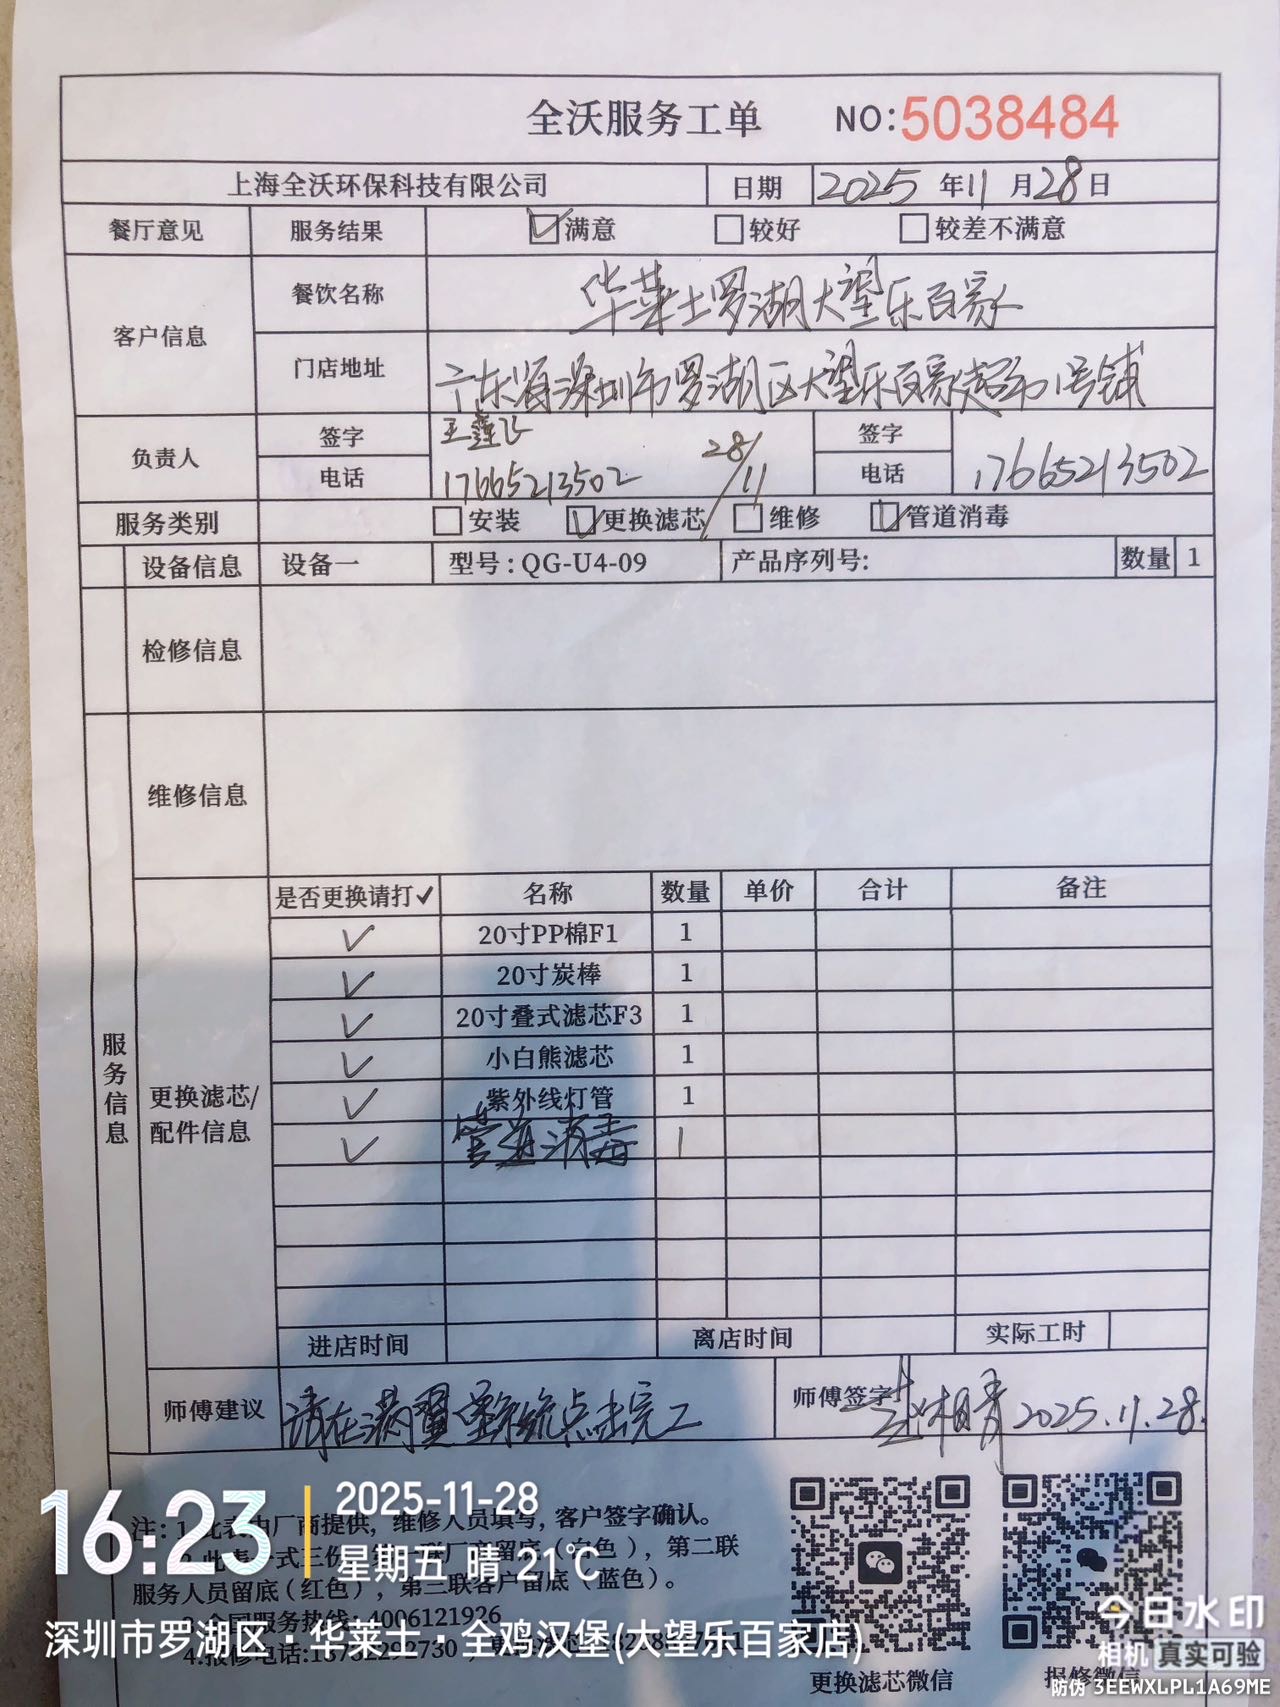 全沃服务工单 NO:5038484
上海全沃环保科技有限公司 日期 2025 年 11 月 28 日
餐厅意见 服务结果 ☑满意 □较好 □较差不满意
客户信息 餐饮名称 华莱士罗湖大望乐百家
门店地址 广东省深圳市罗湖区大望乐百家超市1号铺
负责人 签字 28/11 签字
电话 17665213502 电话 17665213502
服务类别 □安装 ☑更换滤芯 □维修 ☑管道消毒
设备信息 设备一 型号:QG-U4-09 产品序列号: 数量 1
检修信息
维修信息
服务信息
更换滤芯/配件信息
是否更换请打✓ 名称 数量 单价 合计 备注
✓ 20寸PP棉F1 1
✓ 20寸炭棒 1
✓ 20寸叠式滤芯F3 1
✓ 小白熊滤芯 1
✓ 紫外线灯管 1
✓ 管道消毒 1
进店时间 离店时间 实际工时
师傅建议 请在满翼 系统点击完工 师傅签字 2025.11.28.
注: 1.此表由厂商提供，维修人员填写，客户签字确认。
此表一式三份，第一联厂商留底（白色），第二联
服务人员留底（红色），第三联客户留底（蓝色）。
3.全国服务热线:4006121926
4.报修电话:
更换滤芯微信 报修微信
16:23 2025-11-28
星期五 晴 21℃
深圳市罗湖区·华莱士·全鸡汉堡(大望乐百家店)
今日水印
相机 真实可验
防伪 3EEWXLPL1A69ME